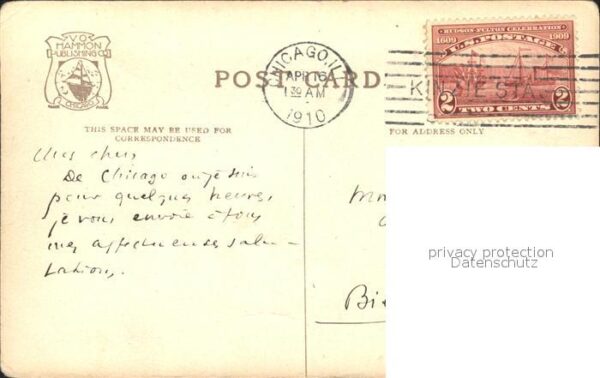 V.O.
HAMMON
PUBLISHING CO.
CHICAGO
CHICAGO, ILL.
APR 16
1 30 AM
1910
POST CARD
HUDSON-FULTON CELEBRATION
1609 1909
U.S. POSTAGE
KINZIE STA.
2 TWO CENTS 2
THIS SPACE MAY BE USED FOR
CORRESPONDENCE
FOR ADDRESS ONLY
Mes chers
De Chicago où je suis
pour quelques heures,
je vous envoie à tous
mes affectueuses salu-
tations.
privacy protection
Datenschutz